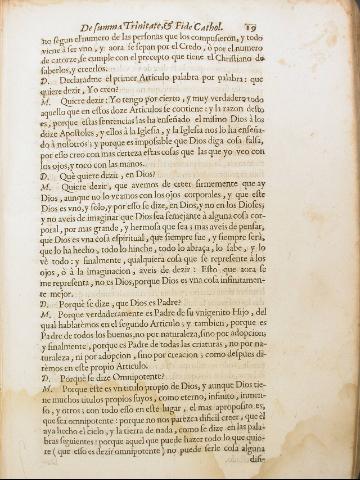 De summa Trinitate, & Fide Cathol. 19
no segun el numero de las personas que los compusieron, y todo
viene à ser vno, y aora se sepan por el Credo, ò por el numero
de catorze, se cumple con el precepto que tiene el Christiano de
saberlos, y creerlos.
D. Declaradme el primer Articulo palabra por palabra: que
quiere dezir, Yo creo?
M. Quiere dezir: Yo tengo por cierto, y muy verdadero todo
aquello que en estos doze Articulos se contiene: y la razon desto
es, porque estas sentencias las ha enseñado el mismo Dios à los
doze Apostoles, y ellos à la Iglesia, y la Iglesia nos lo ha enseña-
do à nosotros: y porque es imposible que Dios diga cosa falsa,
por esso creo con mas certeza estas cosas que las que yo veo con
los ojos, y toco con las manos.
D. Què quiere dezir, en Dios?
M. Quiere dezir, que avemos de creer firmemente que ay
Dios, aunque no lo veamos con los ojos corporales, y que este
Dios es vno, y solo, y por esso se dize, en Dios, y no en los Dioses;
y no aveis de imaginar que Dios sea semejante à alguna cosa cor-
poral, por mas grande, y hermosa que sea; mas aveis de pensar,
que Dios es vna cosa espiritual, que siempre fue, y siempre serà,
que lo ha hecho, todo lo hinche, todo lo abraça, lo sabe, y lo
vè todo: y finalmente, qualquiera cosa que se represente à los
ojos, ò à la imaginacion, aveis de dezir: Esto que aora se
me representa, no es Dios, porque Dios es vna cosa infinitamen-
te mejor.
D. Porquè se dize, que Dios es Padre?
M. Porque verdaderamente es Padre de su vnigenito Hijo, del
qual hablarèmos en el segundo Articulo: y tambien, porque es
Padre de todos los buenos, no por naturaleza, sino por adopcion:
y finalmente, porque es Padre de todas las criaturas, no por na-
turaleza, ni por adopcion, sino por creacion; como despues di-
rèmos en este propio Articulo.
D. Porquè se dize Omnipotente?
M. Porque este es vn titulo propio de Dios, y aunque Dios tie-
ne muchos titulos propios suyos, como eterno, infinito, inmen-
so, y otros: con todo esso en este lugar, el mas aproposito es,
que sea omnipotente: porque no nos parezca dificil creer, que èl
aya hecho el cielo, y la tierra de nada, como se dize en las pala-
bras siguientes: porque aquel que puede hazer todo lo que quie-
re (que esso es dezir omnipotente) no puede serle cosa alguna
difi-